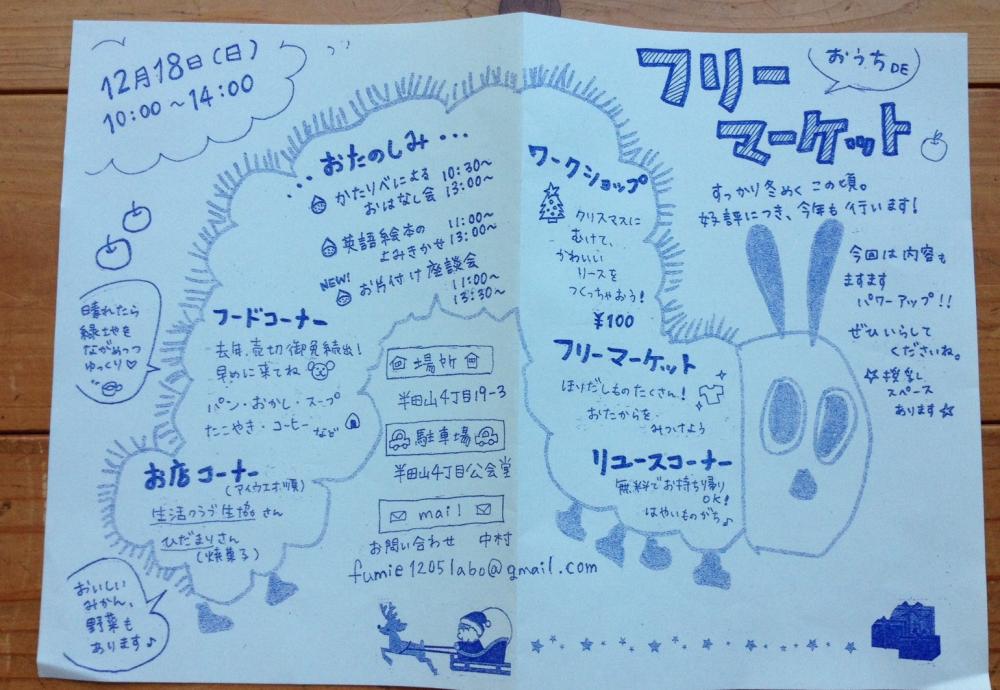 12月18日(日)
10:00〜14:00
おうちDE
フリー
マーケット
すっかり冬めくこの頃。
好評につき、今年も行います!
今回は内容も
ますます
パワーアップ!!
ぜひいらして
くださいね。
☆授乳
スペース
あります☆
・・おたのしみ・・・
かたりべによる 10:30〜
おはなし会 13:00〜
英語絵本の 11:00〜
よみきかせ 13:00〜
NEW!
お片付け座談会
11:00〜
13:30〜
ワークショップ
クリスマスに
むけて、
かわいい
リースを
つくっちゃおう!
¥100
フリーマーケット
ほりだしものたくさん!
おたからを
みつけよう
リユースコーナー
無料でお持ち帰り
OK!
はやいものがち♪
フードコーナー
去年、売切御免続出!
早めに来てね
パン・おかし・スープ
たこやき・コーヒー など
お店コーナー
(アイウエオ順)
生活クラブ生協さん
ひだまりさん
(焼菓子)
晴れたら
緑地を
ながめつつ
ゆっくり♡
おいしい
みかん、
野菜も
あります♪
場所
半田山4丁目19-3
駐車場
半田山4丁目公会堂
mail
お問い合わせ 中村
fumie1205labo@gmail.com